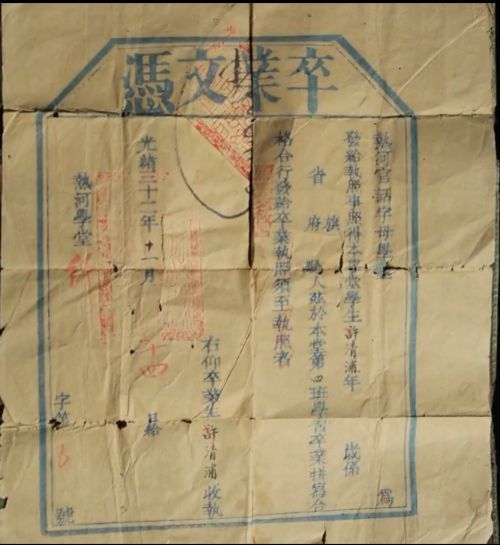 卒業文憑
熱河官話字母學堂 為
發給執照事照得本學堂學生許清浦年 歲係
省 旗
府 縣 人茲於本堂第四班學習卒業拼寫合
格合行發給卒業執照須至執照者
右仰卒業生許清浦收執
光緒三十二年十一月十四日給
熱河學堂
字第 號